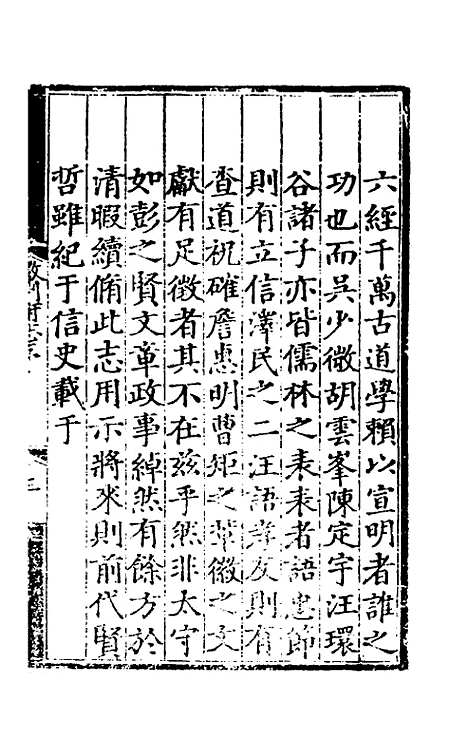 六經千萬古道學賴以宣明者誰之
功也而吳少微胡雲峯陳定宇汪環
谷諸子亦皆儒林之表表者語忠節
則有立信澤民之二汪語孝友則有
查道祝確詹惠明曹矩之輩徽之文
獻有足徵者其不在兹乎然非太守
如彭之賢文章政事綽然有餘方於
清暇續脩此志用示將來則前代賢
哲雖紀于信史載于